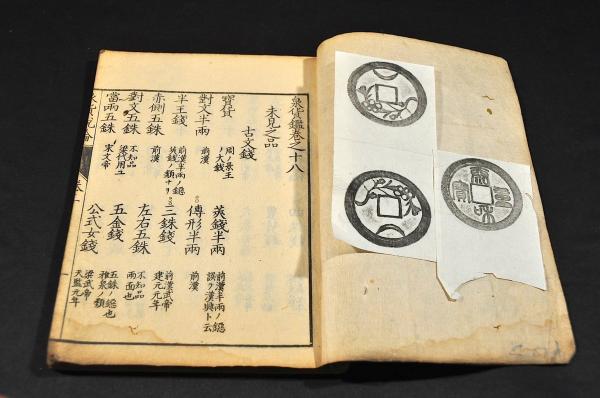 泉貨鑑巻之十八
未見之品
古文錢
寶貨
周ノ景王
ノ大錢
對文半兩
前漢
半王錢
前漢半兩ノ
莢錢ノ類ナリ
赤側五銖
前漢
對文五銖
不知品
梁代用ユ
當兩五銖
宋文帝
莢錢半兩
前漢半兩ノ
誤リ漢興ト云
傳形半兩
前漢
三銖錢
前漢武帝
建元元年
左右五銖
不知品
兩面也
五金錢
五銖ノ
雅泉ノ類
公式女錢
梁武帝
天監元年